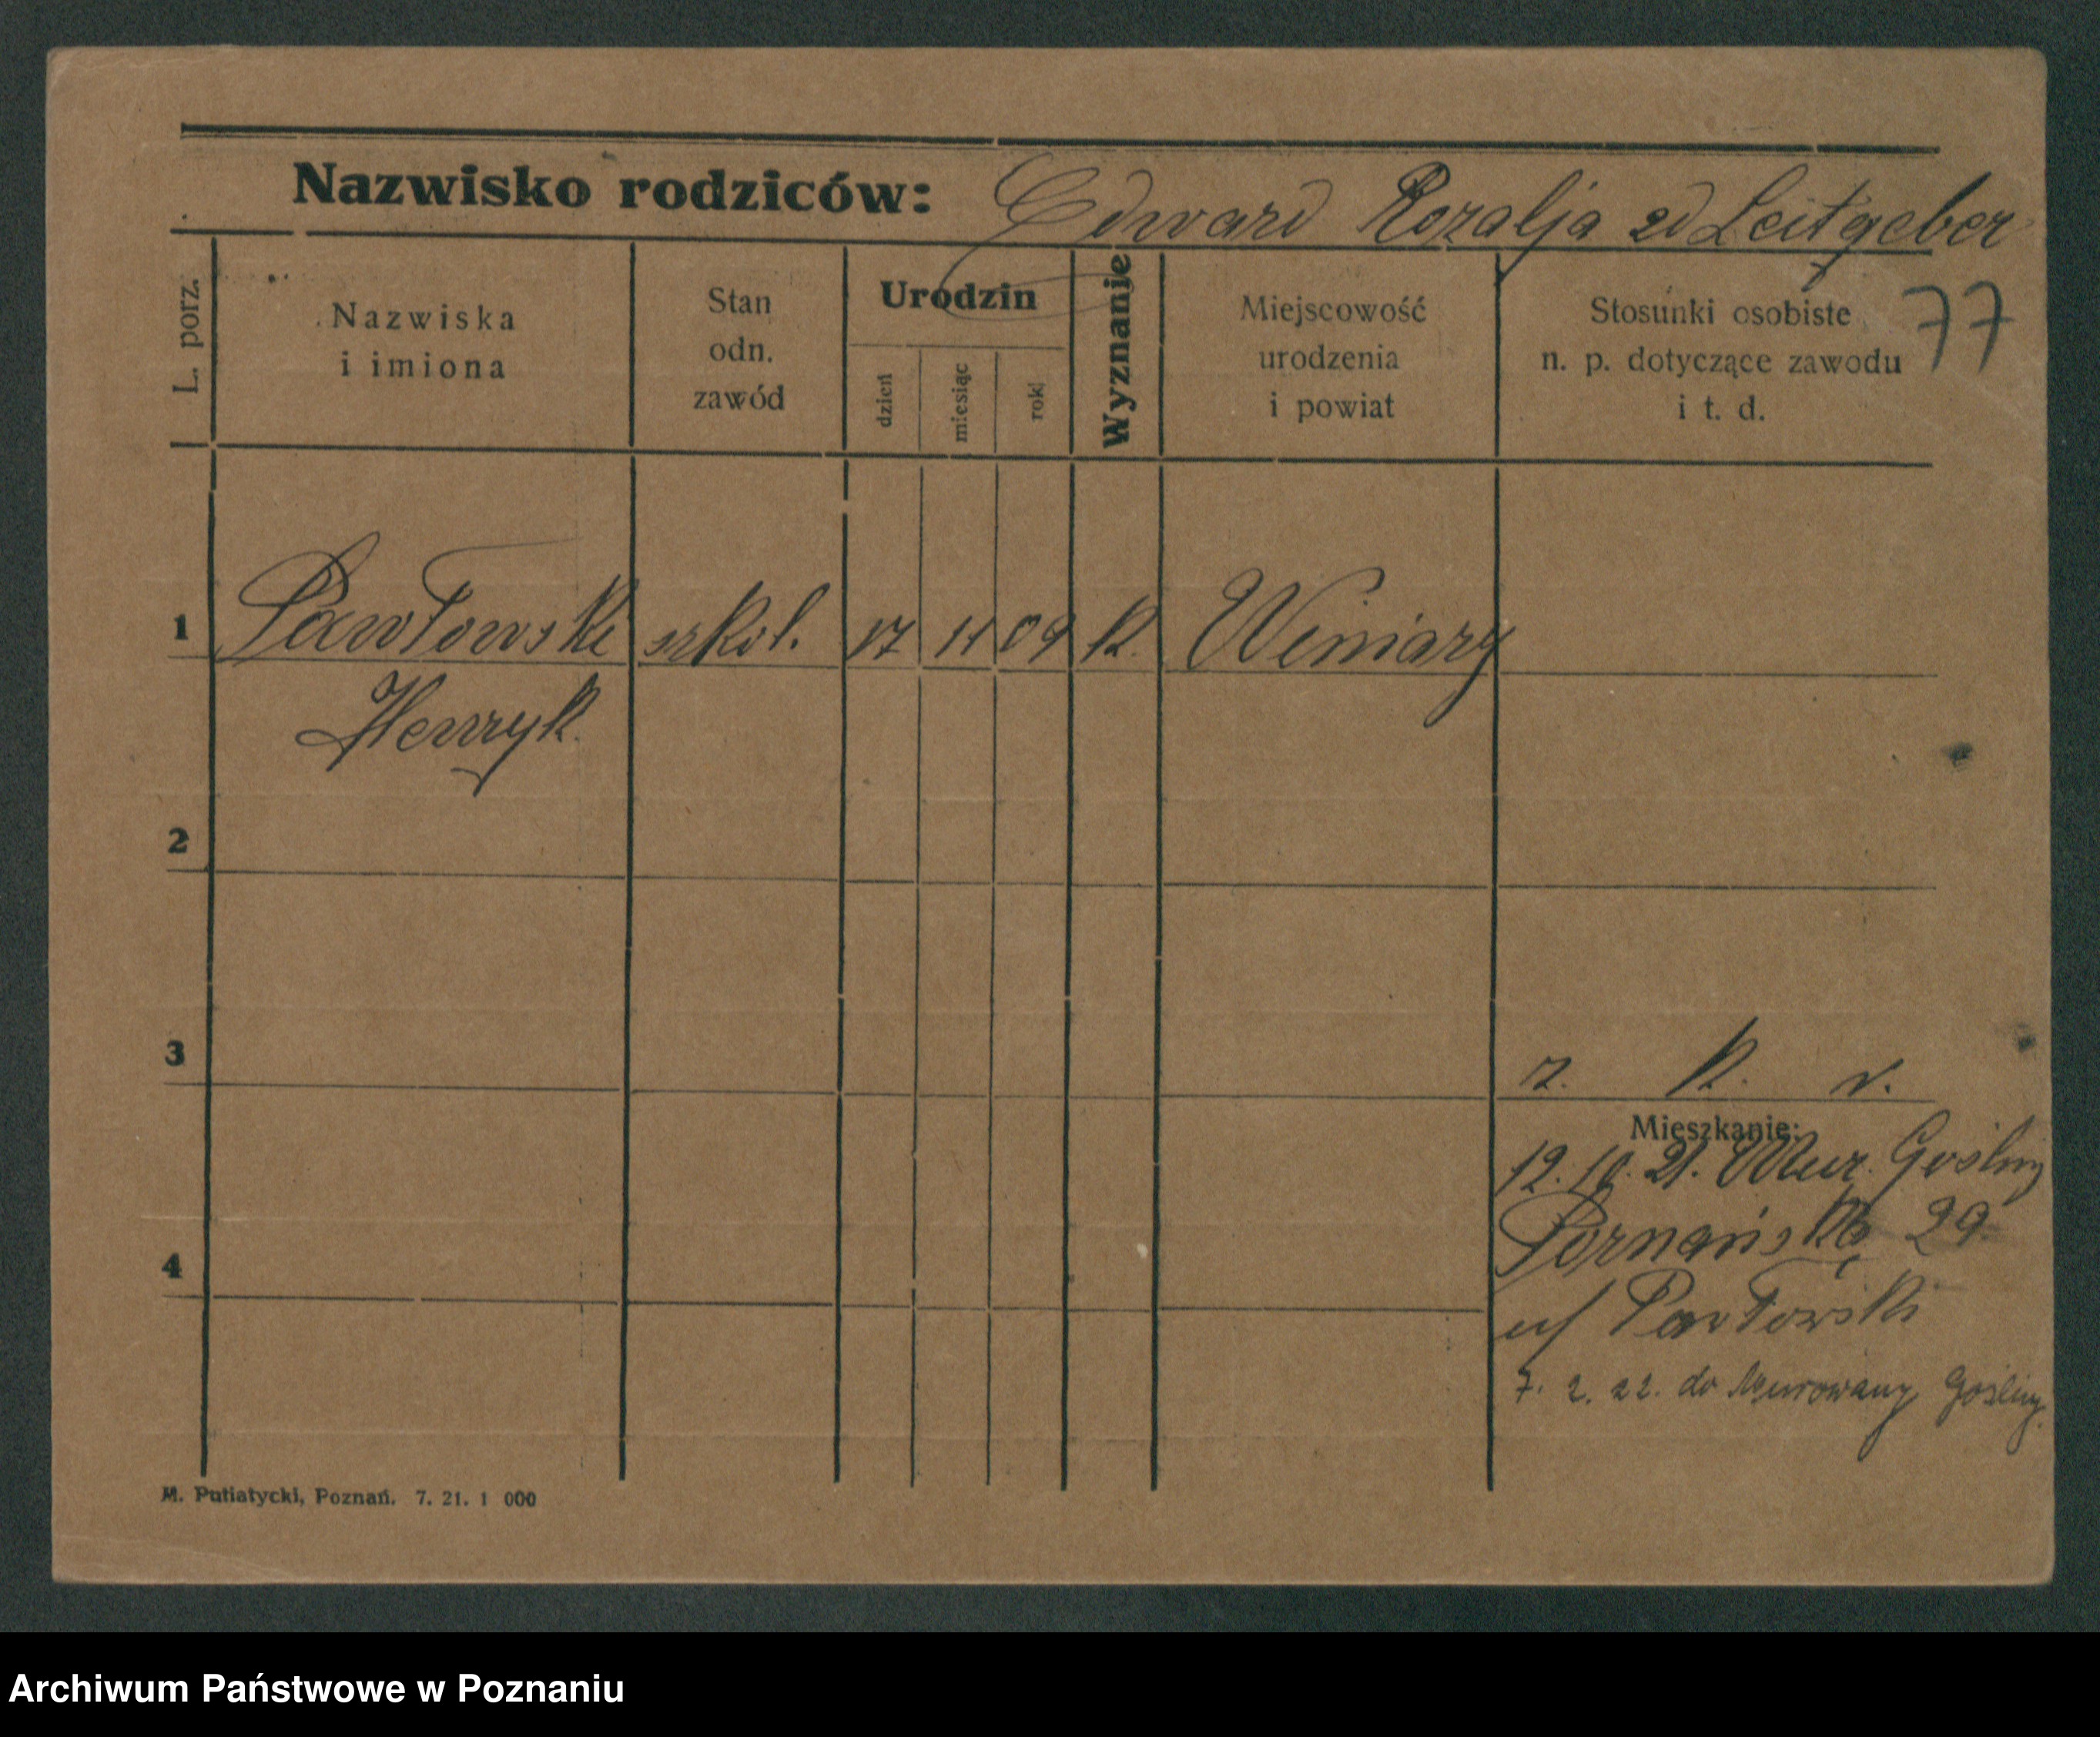 Nazwisko rodziców: Edward Rozalja zd Leitgeber
77
L. porz.
Nazwiska
i imiona
Stan
odn.
zawód
Urodzin
dzień
miesiąc
rok
Wyznanie
Miejscowość
urodzenia
i powiat
Stosunki osobiste
n. p. dotyczące zawodu
i t. d.
1 Pawłowski szkol. 17 11 09 k. Winiary
Henryk.
2
3
z. k. v.
Mieszkanie:
12. 10. 21. Mur. Gośliny
4
Poznańska 29
u/ Pawłowski
7. 2. 22. do Murowany Gośliny.
M. Putiatycki, Poznań. 7. 21. 1 000
Archiwum Państwowe w Poznaniu